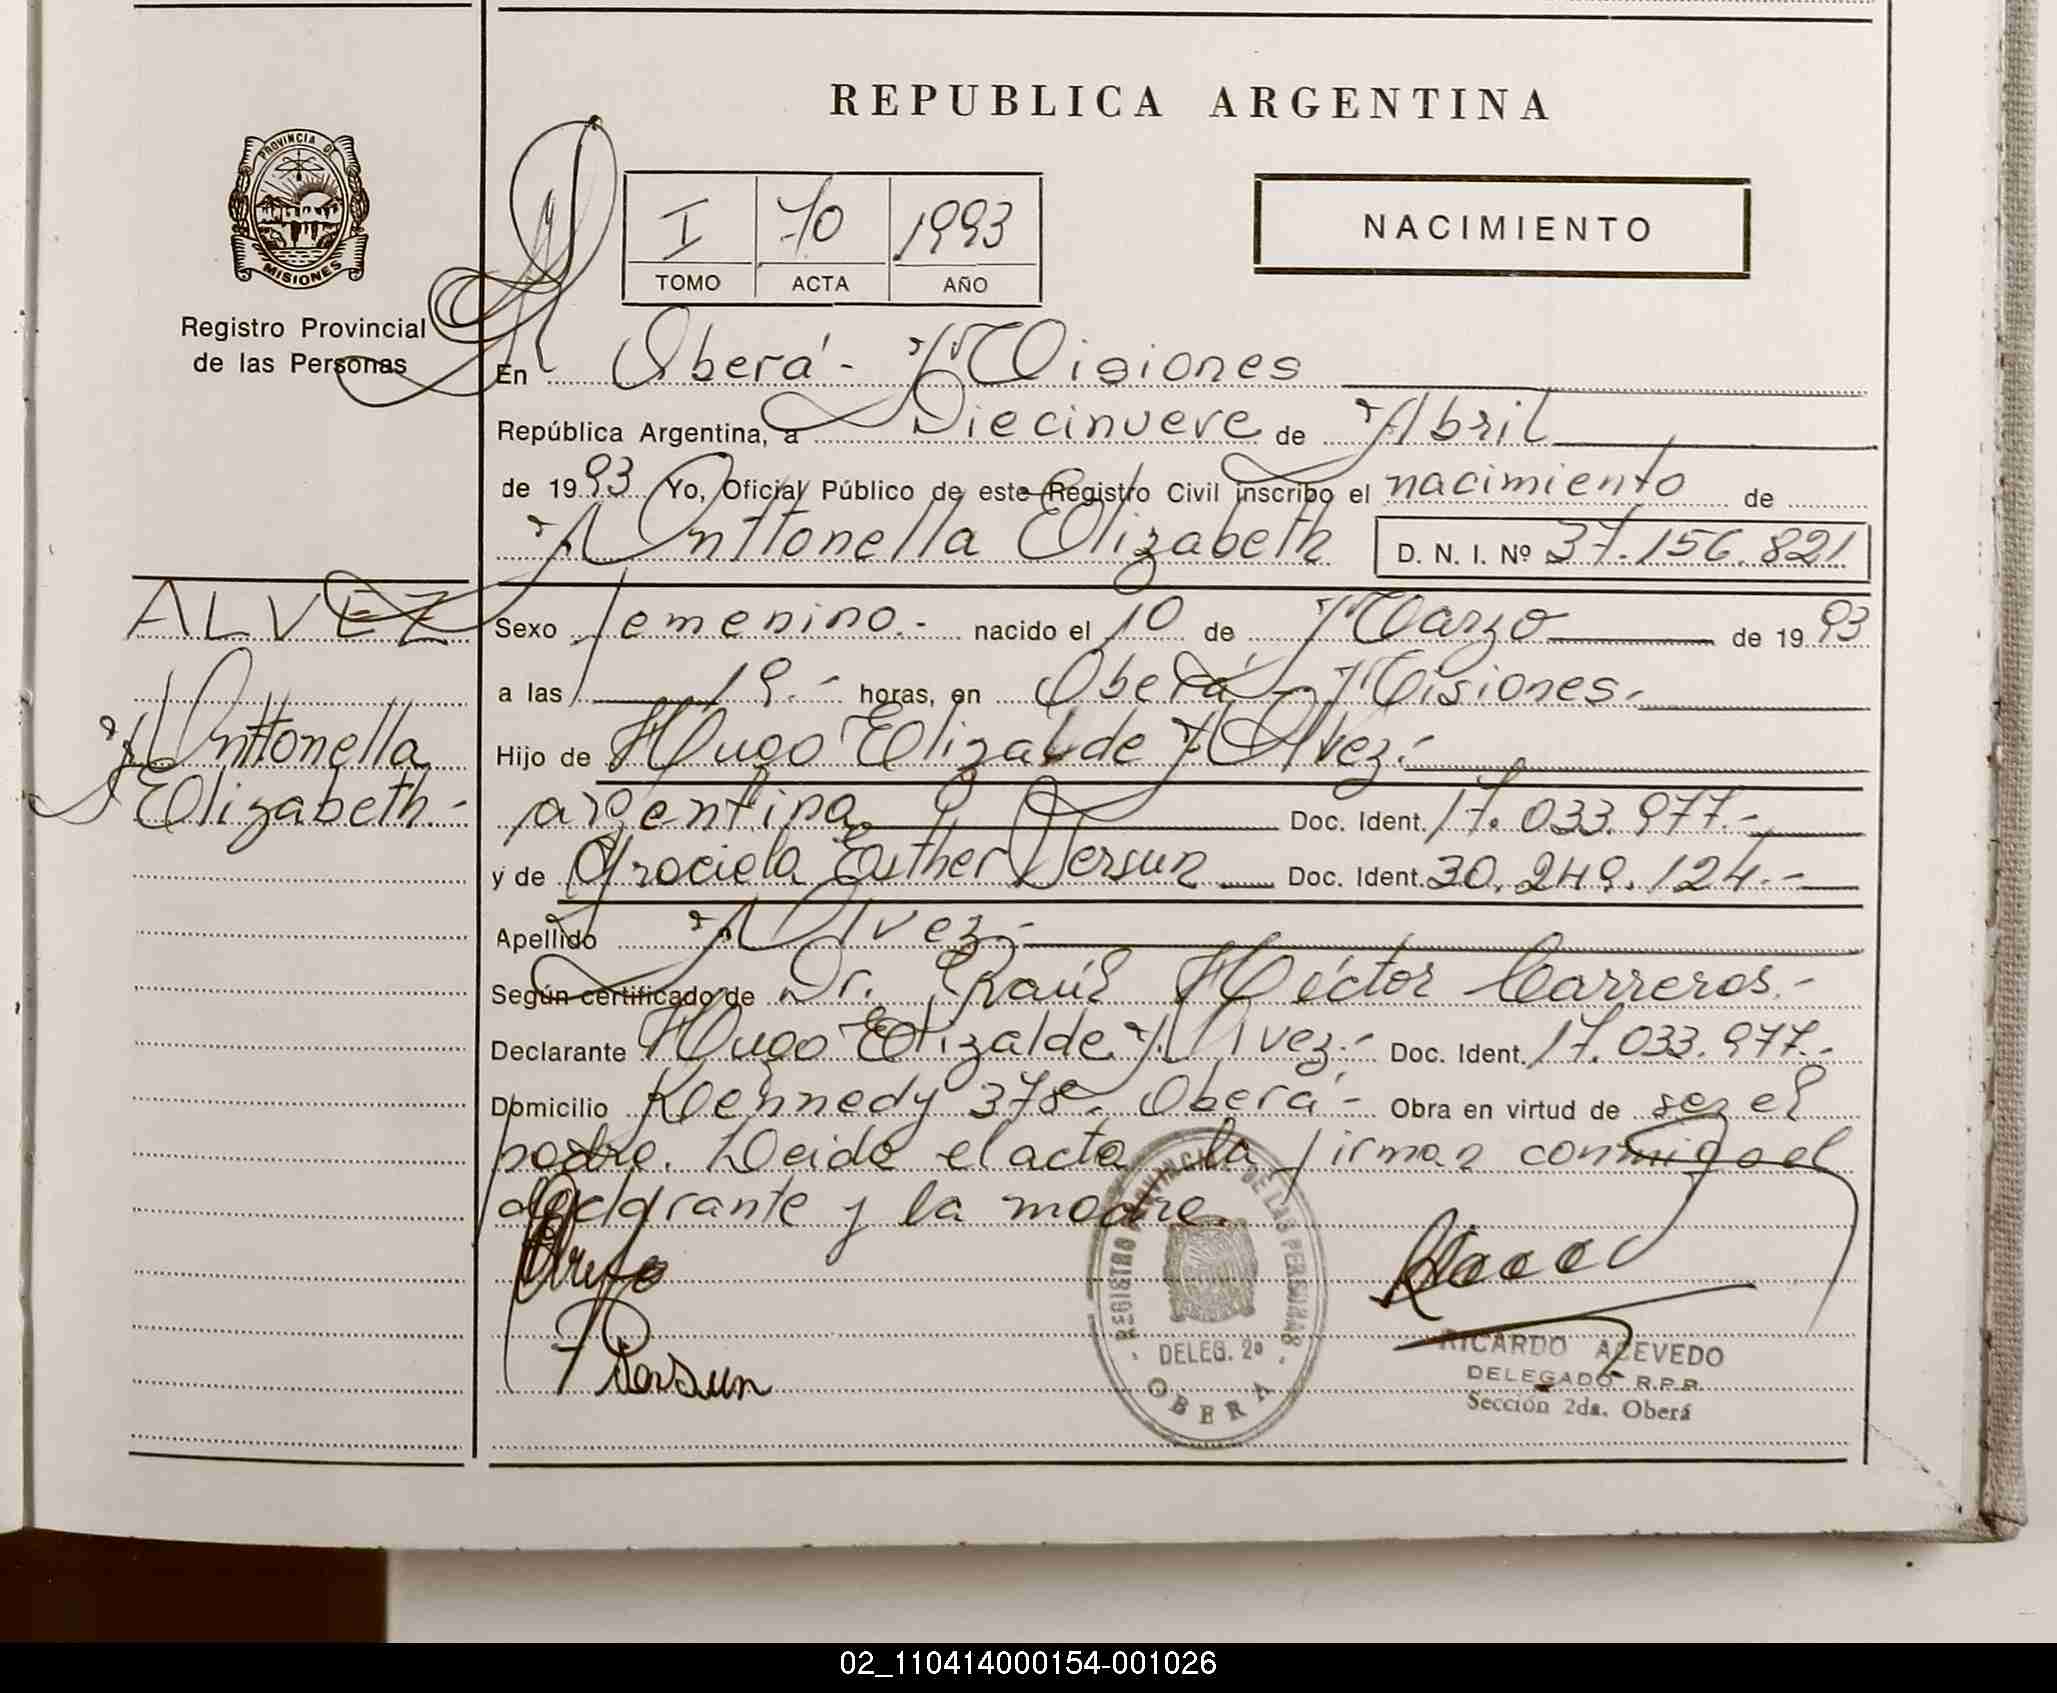 REPUBLICA ARGENTINA
PROVINCIA DE
MISIONES
Registro Provincial
de las Personas
I 70 1993
TOMO ACTA AÑO
NACIMIENTO
En Oberá - Misiones
República Argentina, a Diecinueve de Abril
de 1993 Yo, Oficial Público de este Registro Civil inscribo el nacimiento de
Anttonella Elizabeth D. N. I. Nº 37.156.821
ALVEZ
Anttonella
Elizabeth.-
Sexo femenino.- nacido el 10 de Marzo de 1993
a las 19.- horas, en Oberá - Misiones.
Hijo de Hugo Elizalde Alvez.-
argentina Doc. Ident. 17.033.977.-
y de Graciela Esther Dersun Doc. Ident. 30.249.124.-
Apellido Alvez.-
Según certificado de Dr. Raúl Héctor Carreros.-
Declarante Hugo Elizalde Alvez.- Doc. Ident. 17.033.977.-
Domicilio Kennedy 378. Oberá - Obra en virtud de ser el
padre. Leida el acta la firman conmigo el
declarante y la madre.
REGISTRO PROVINCIAL DE LAS PERSONAS
DELEG. 2ª
OBERA
RICARDO ACEVEDO
DELEGADO R.P.P.
Sección 2da. Oberá
02_110414000154-001026